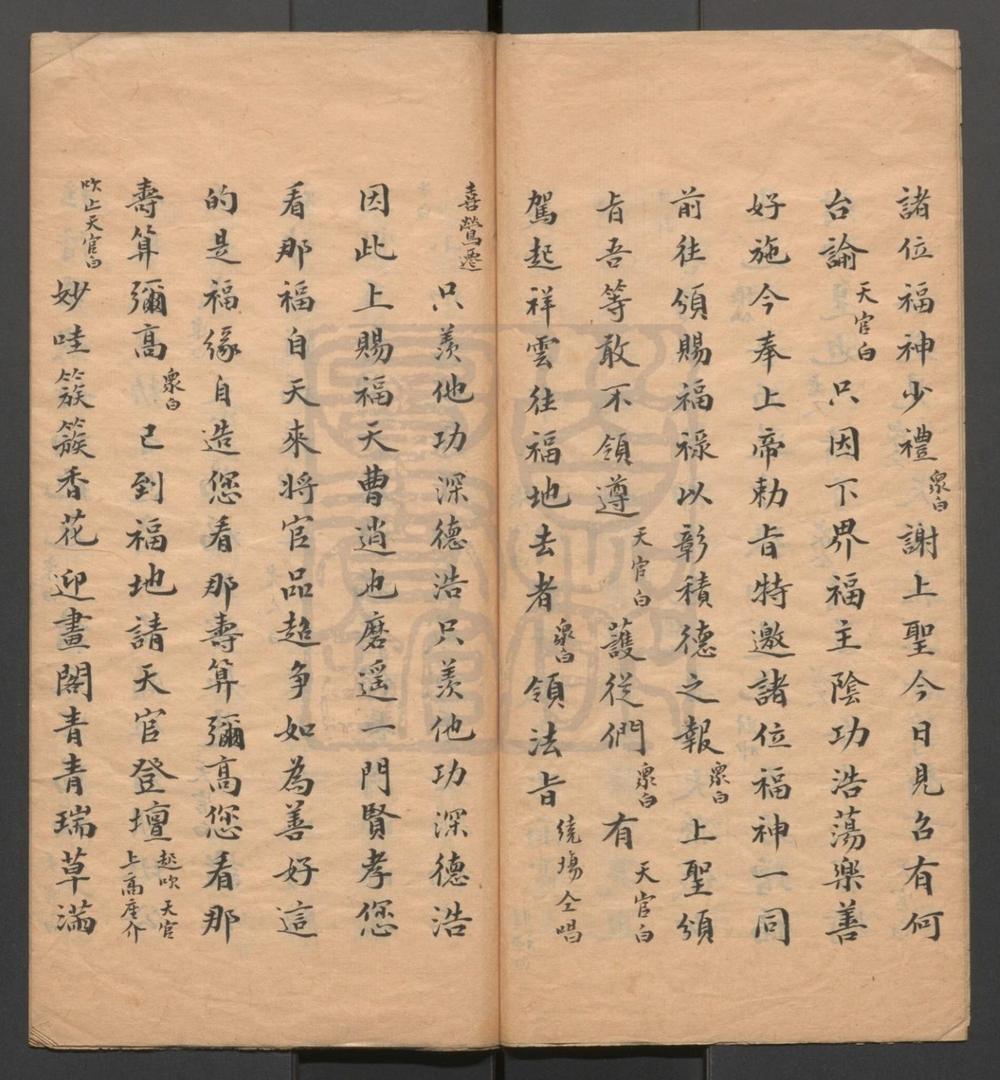 諸位福神少禮衆白謝上聖今日見召有何
台論天官白只因下界福主陰功浩蕩樂善
好施今奉上帝勅旨特邀諸位福神一同
前往頒賜福祿以彰積德之報衆白上聖頒
旨吾等敢不領遵天官白護從們衆白有天官白
駕起祥雲往福地去者衆白領法旨繞場仝唱
喜鶯遷只羨他功深德浩只羨他功深德浩
因此上賜福天曹逍也麽遥一門賢孝您
看那福自天來將官品超爭如為善好這
的是福緣自造您看那壽算彌高您看那
壽算彌高衆白已到福地請天官登壇起吹天官上高座介
吹止天官白妙哇簇簇香花迎畫閣青青瑞草滿